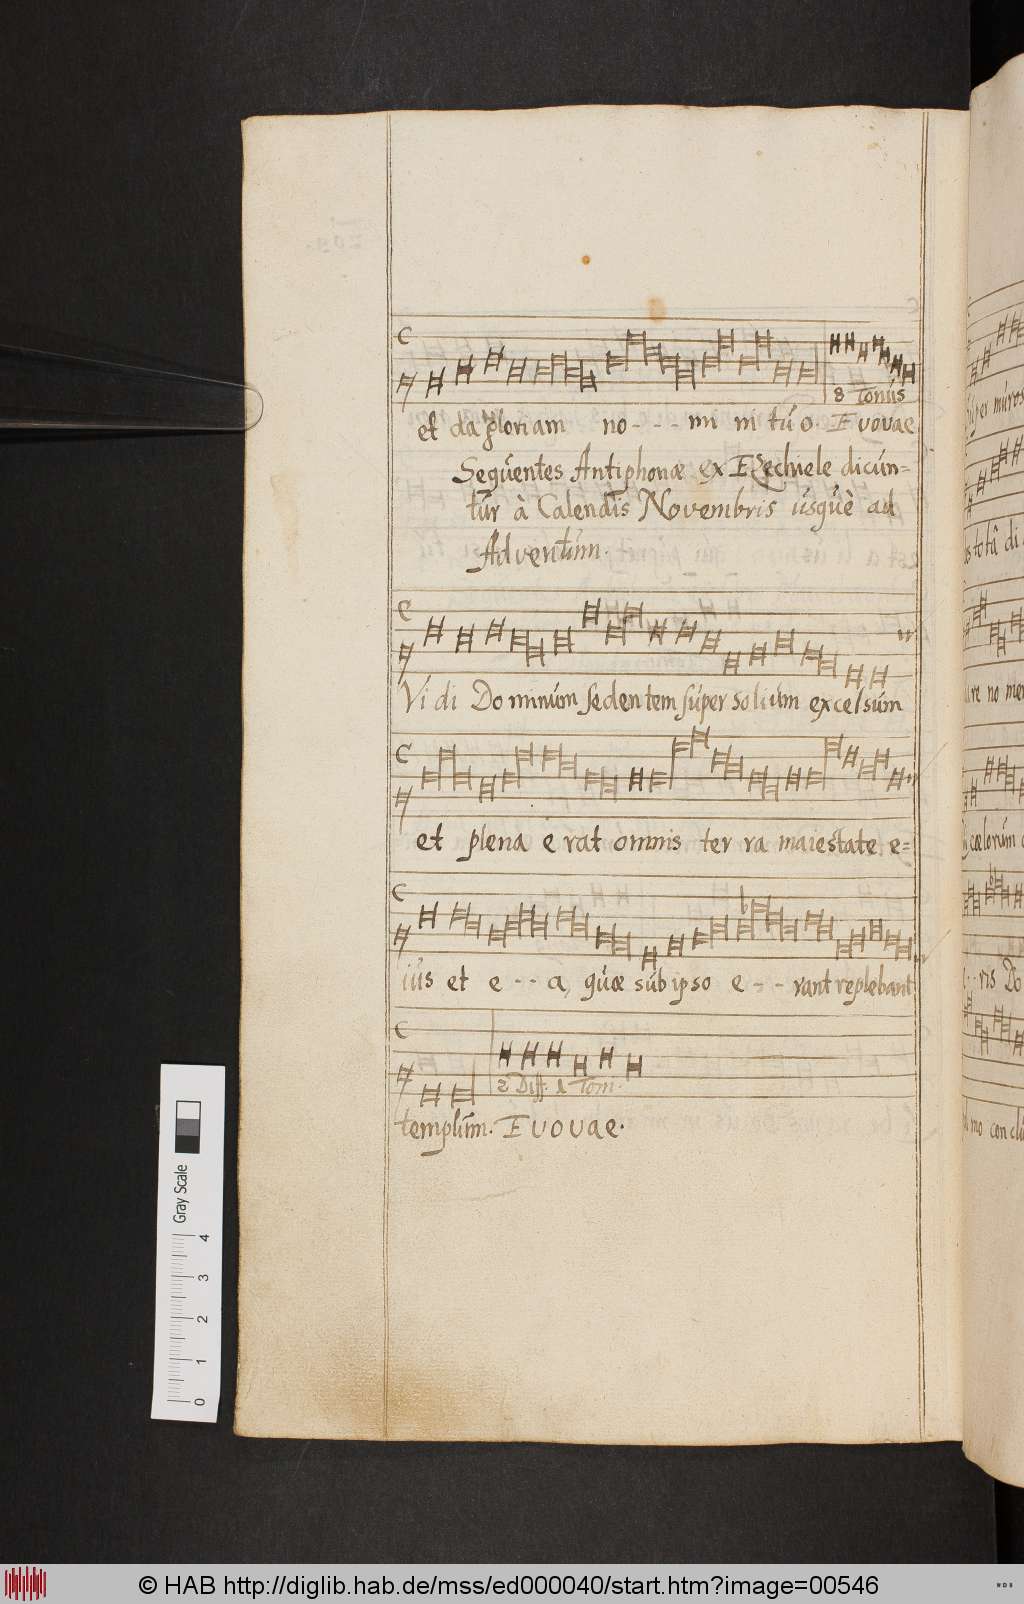 8 Tonús
et da gloriam no - - - mi ni túo. Evovae
Seqúentes Antiphonæ ex Ezechiele dicún=
túr à Calendis Novembris úsqúè ad
Adventúm.
Vi di Do minúm sedentem súper solium excelsúm
et plena e rat omnis ter ra maiestate e=
iús et e - - a, qúæ súb ipso e - - rant replebant
2 Diff. 1 Toni.
templúm. Evovae.
Gray Scale
0 1 2 3 4
© HAB http://diglib.hab.de/mss/ed000040/start.htm?image=00546